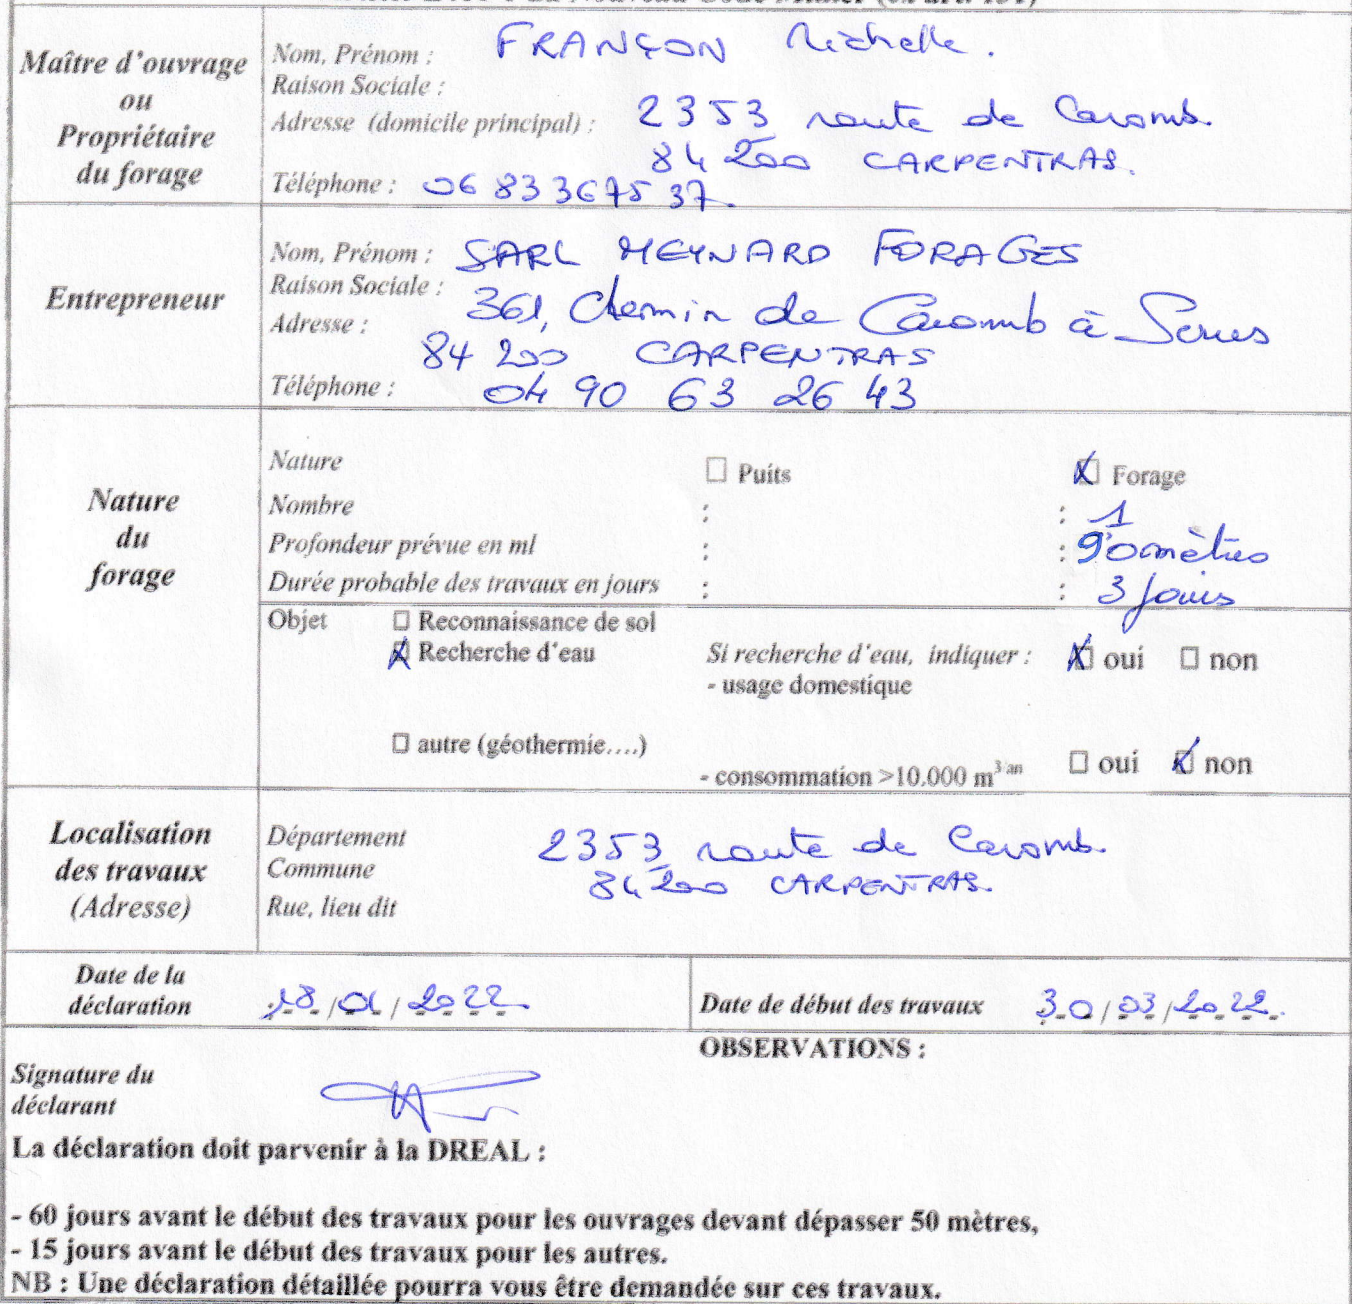 Nouveau Code Minier (ex art. 131)
Maître d'ouvrage
ou
Propriétaire
du forage
Nom, Prénom : FRANÇON Michelle.
Raison Sociale :
Adresse (domicile principal) : 2353 route de Caromb.
84 200 CARPENTRAS.
Téléphone : 06 83 36 75 37.
Entrepreneur
Nom, Prénom : SARL MEYNARD FORAGES
Raison Sociale :
Adresse : 361, Chemin de Caromb à Serres
84 200 CARPENTRAS
Téléphone : 04 90 63 26 43
Nature
du
forage
Nature ☐ Puits ☒ Forage
Nombre : : 1
Profondeur prévue en ml : : 90 mètres
Durée probable des travaux en jours : : 3 jours
Objet ☐ Reconnaissance de sol
☒ Recherche d'eau Si recherche d'eau, indiquer : ☒ oui ☐ non
- usage domestique
☐ autre (géothermie....)
- consommation >10.000 m³ an ☐ oui ☒ non
Localisation
des travaux
(Adresse)
Département 2353 route de Caromb.
Commune 84200 CARPENTRAS.
Rue, lieu dit
Date de la
déclaration 18/01/2022 Date de début des travaux 30/03/2022.
OBSERVATIONS :
Signature du
déclarant
La déclaration doit parvenir à la DREAL :
- 60 jours avant le début des travaux pour les ouvrages devant dépasser 50 mètres,
- 15 jours avant le début des travaux pour les autres.
NB : Une déclaration détaillée pourra vous être demandée sur ces travaux.